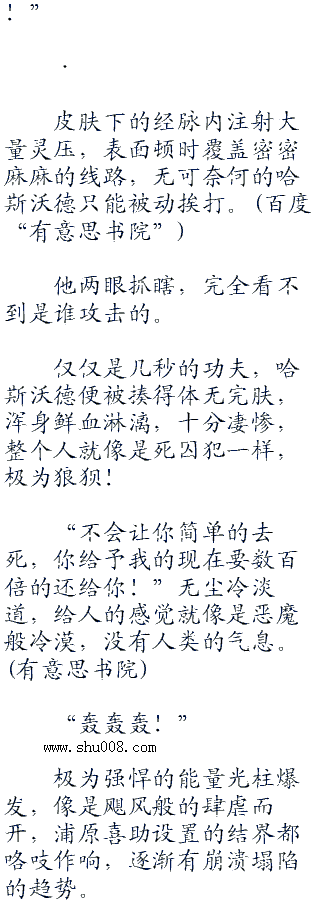 ！”
．
皮肤下的经脉内注射大
量灵压，表面顿时覆盖密密
麻麻的线路，无可奈何的哈
斯沃德只能被动挨打。(百度
“有意思书院”)
他两眼抓瞎，完全看不
到是谁攻击的。
仅仅是几秒的功夫，哈
斯沃德便被揍得体无完肤，
浑身鲜血淋漓，十分凄惨，
整个人就像是死囚犯一样，
极为狼狈！
“不会让你简单的去
死，你给予我的现在要数百
倍的还给你！”无尘冷淡
道，给人的感觉就像是恶魔
般冷漠，没有人类的气息。
(有意思书院)
“轰轰轰！”
www.shu008.com
极为强悍的能量光柱爆
发，像是飓风般的肆虐而
开，浦原喜助设置的结界都
咯吱作响，逐渐有崩溃塌陷
的趋势。